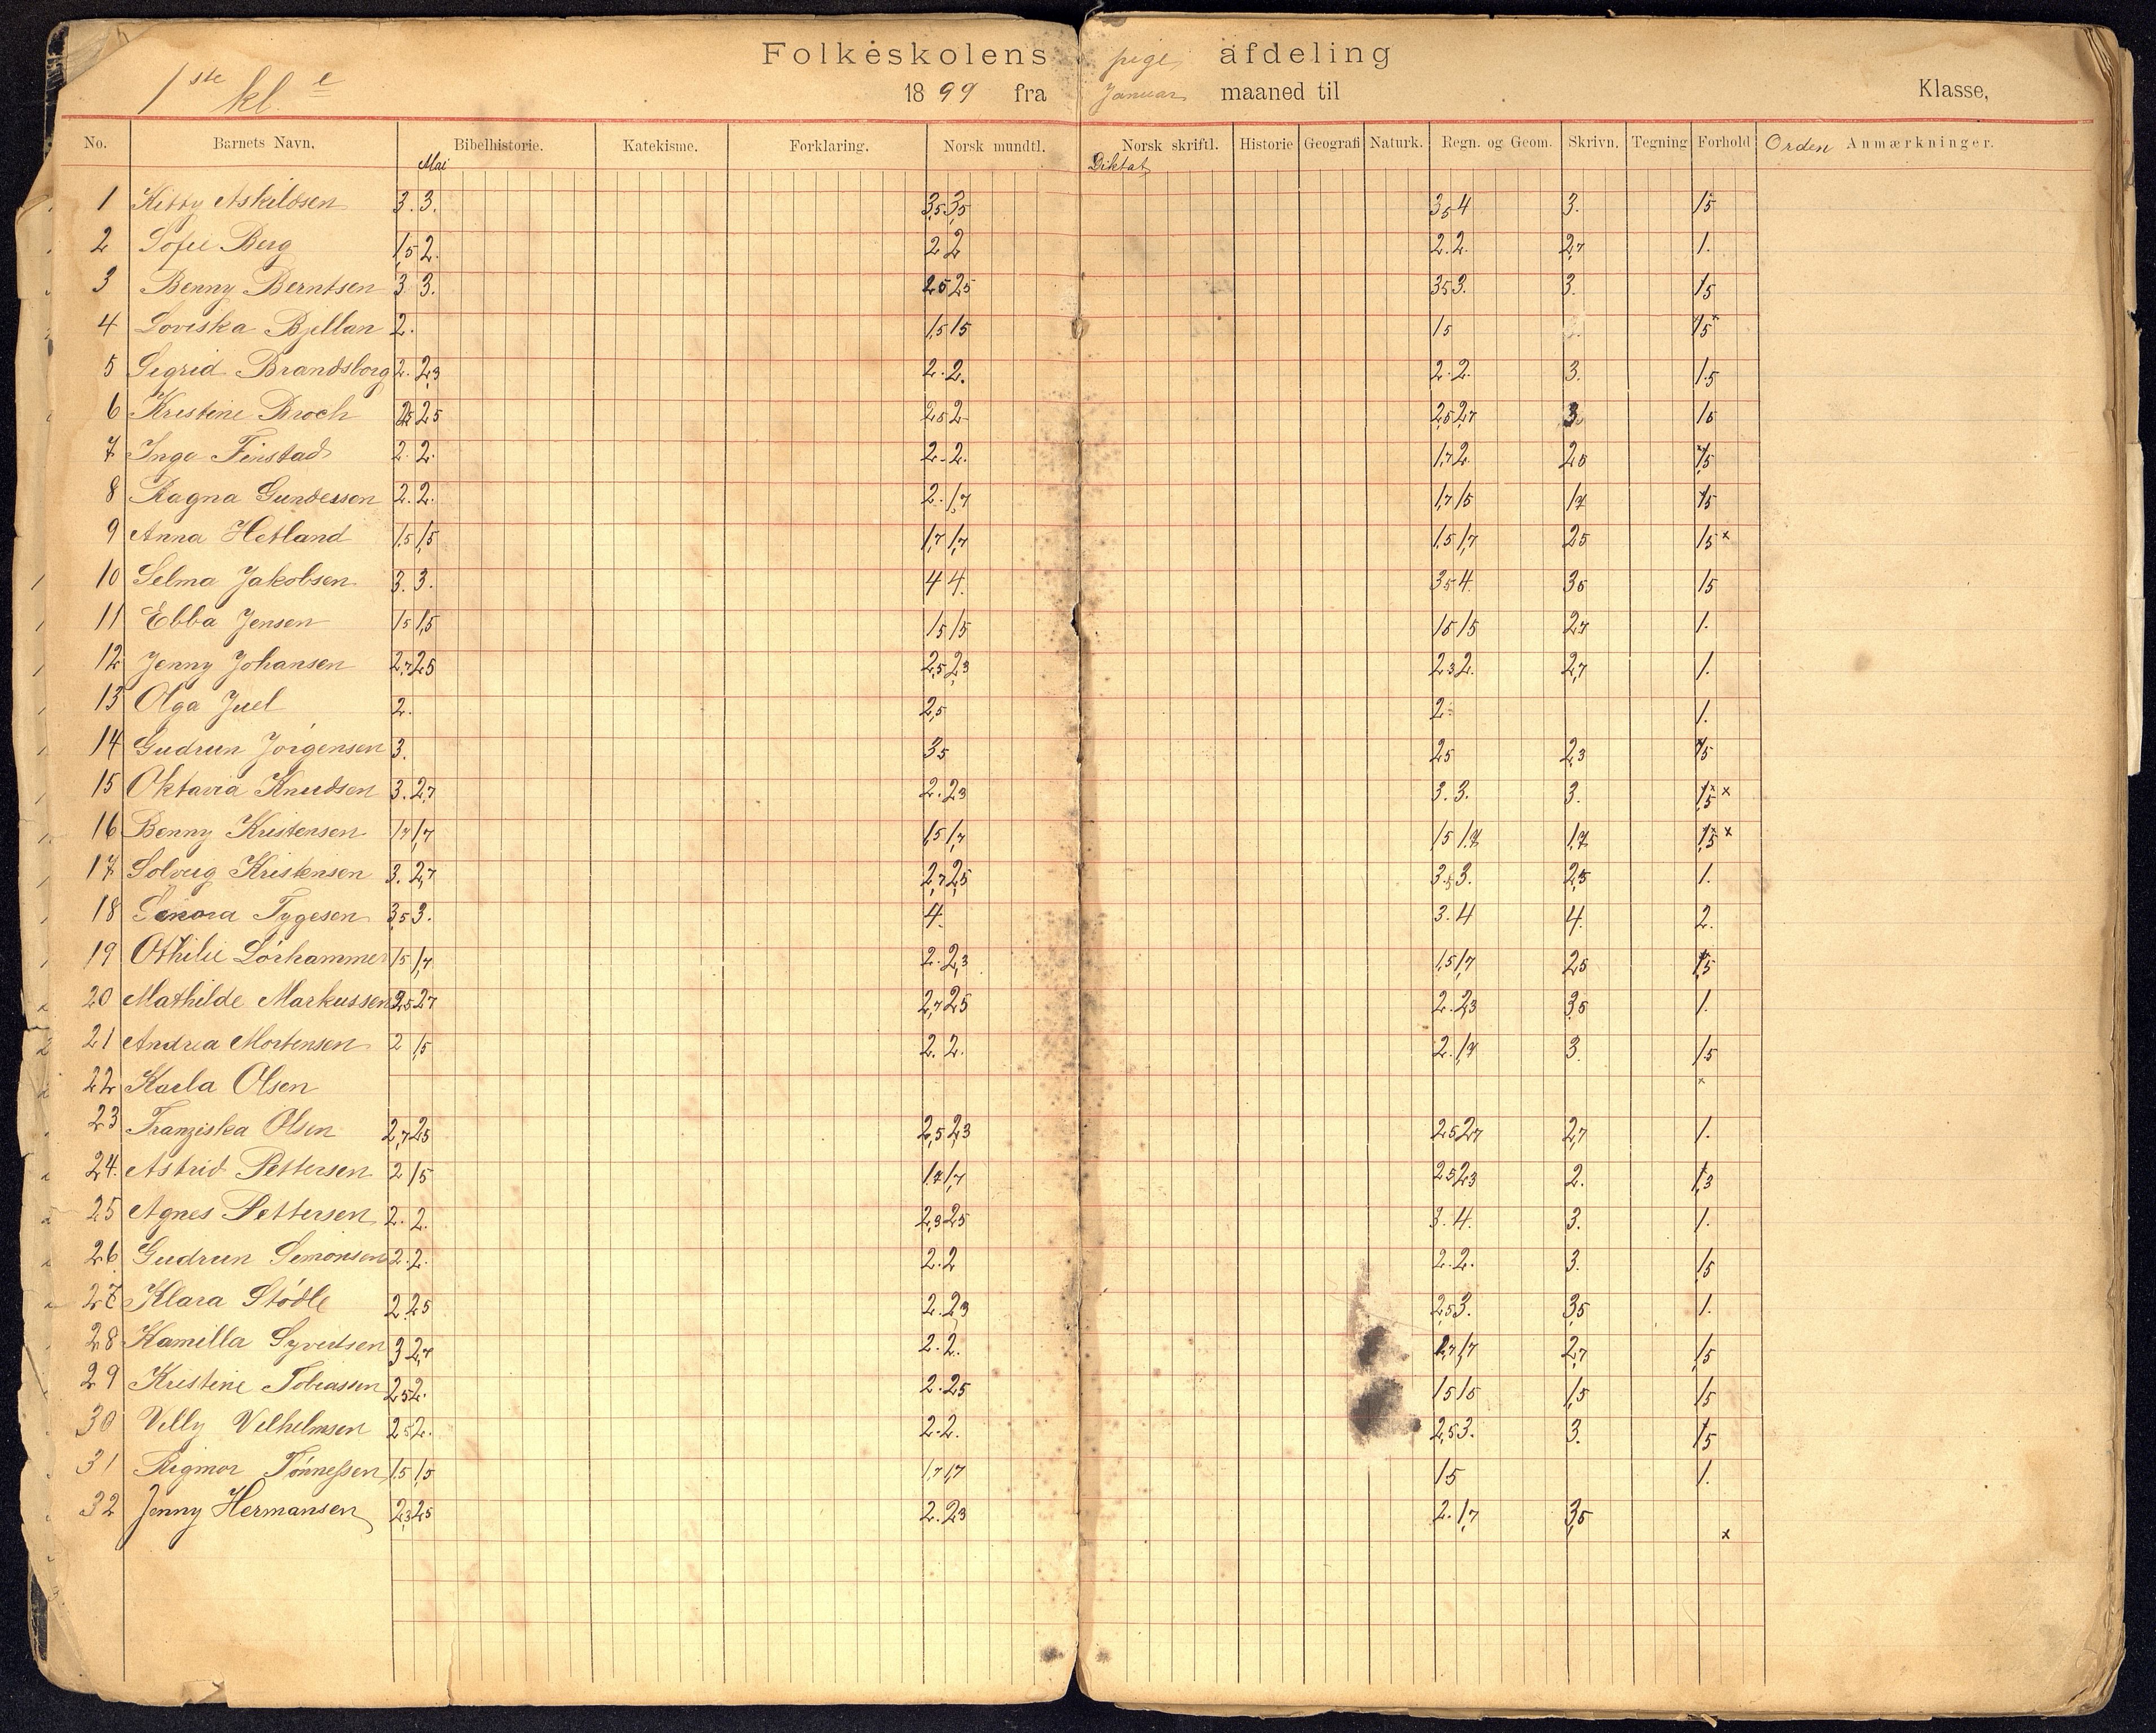 Folkeskolens pige afdeling
1ste kl. e 1899 fra Januar maaned til Klasse,
No. Barnets Navn. Bibelhistorie. Katekisme. Forklaring. Norsk mundtl. Norsk skriftl. Historie Geografi Naturk. Regn. og Geom. Skrivn. Tegning Forhold Orden Anmærkninger.
Mai Diktat
1 Kitty Askildsen 3. 3. 3,5 3,5 3,5 4 3. 1,5
2 Sofie Berg 1,5 2. 2 2 2. 2. 2,7 1.
3 Benny Berntsen 3. 3. 2,5 2,5 3,5 3. 3. 1,5
4 Loviska Bjelland 2. 1,5 1,5 1,5 1,5 x
5 Sigrid Brandsborg 2. 2,3 2. 2. 2. 2. 3. 1,5
6 Kristine Broch 2,5 2,5 2,5 2 2,5 2,7 3. 1,5
7 Inga Finstad 2. 2. 2. 2. 1,7 2. 2,5 1,5
8 Ragna Gundersen 2. 2. 2. 1,7 1,7 1,5 1,7 1,5
9 Anna Hetland 1,5 1,5 1,7 1,7 1,5 1,7 2,5 1,5 x
10 Selma Jakobsen 3. 3. 4 4. 3,5 4. 3,5 1,5
11 Ebba Jensen 1,5 1,5 1,5 1,5 1,5 1,5 2,7 1.
12 Jenny Johansen 2,7 2,5 2,5 2,3 2,3 2. 2,7 1.
13 Olga Juel 2. 2,5 2. 1.
14 Gudrun Jörgensen 3. 3,5 2,5 2,3 1,5
15 Oktavia Knudsen 3. 2,7 2. 2,3 3. 3. 3. 1,5 x x
16 Benny Kristensen 1,7 1,7 1,5 1,7 1,5 1,7 1,7 1,5 x x
17 Solveig Kristensen 3. 2,7 2,7 2,5 3,5 3. 2,5 1.
18 Tygesen 3,5 3. 4. 3. 4 4. 2.
19 Othilie Lörhammer 1,5 1,7 2. 2,3 1,5 1,7 2,5 1,5
20 Mathilde Markussen 2,5 2,7 2,7 2,5 2. 2,3 3,5 1.
21 Andrea Mortensen 2 1,5 2. 2. 2. 1,7 3. 1,5
22 Karla Olsen x
23 Franziska Olsen 2,7 2,5 2,5 2,3 2,5 2,7 2,7 1.
24. Astrid Pettersen 2 1,5 1,7 1,7 2,5 2,3 2. 1,3
25 Agnes Pettersen 2. 2. 2,3 2,5 3. 4. 3. 1.
26 Gudrun Simonsen 2. 2. 2. 2 2. 2. 3. 1,5
27 Klara Stödle 2 2,5 2. 2,3 2,5 3. 3,5 1.
28 Kamilla Syvertsen 3 2,7 2. 2. 1,7 1,7 2,7 1,5
29 Kristine Tobiassen 2,5 2. 2. 2,5 1,5 1,5 1,5 1,5
30 Villy Vilhelmsen 2,5 2. 2. 2. 2,5 3. 3. 1,5
31 Rigmor Tönnessen 1,5 1,5 1,7 1,7 1,5 1.
32 Jenny Hermansen 2,3 2,5 2. 2,3 2. 1,7 3,5 x